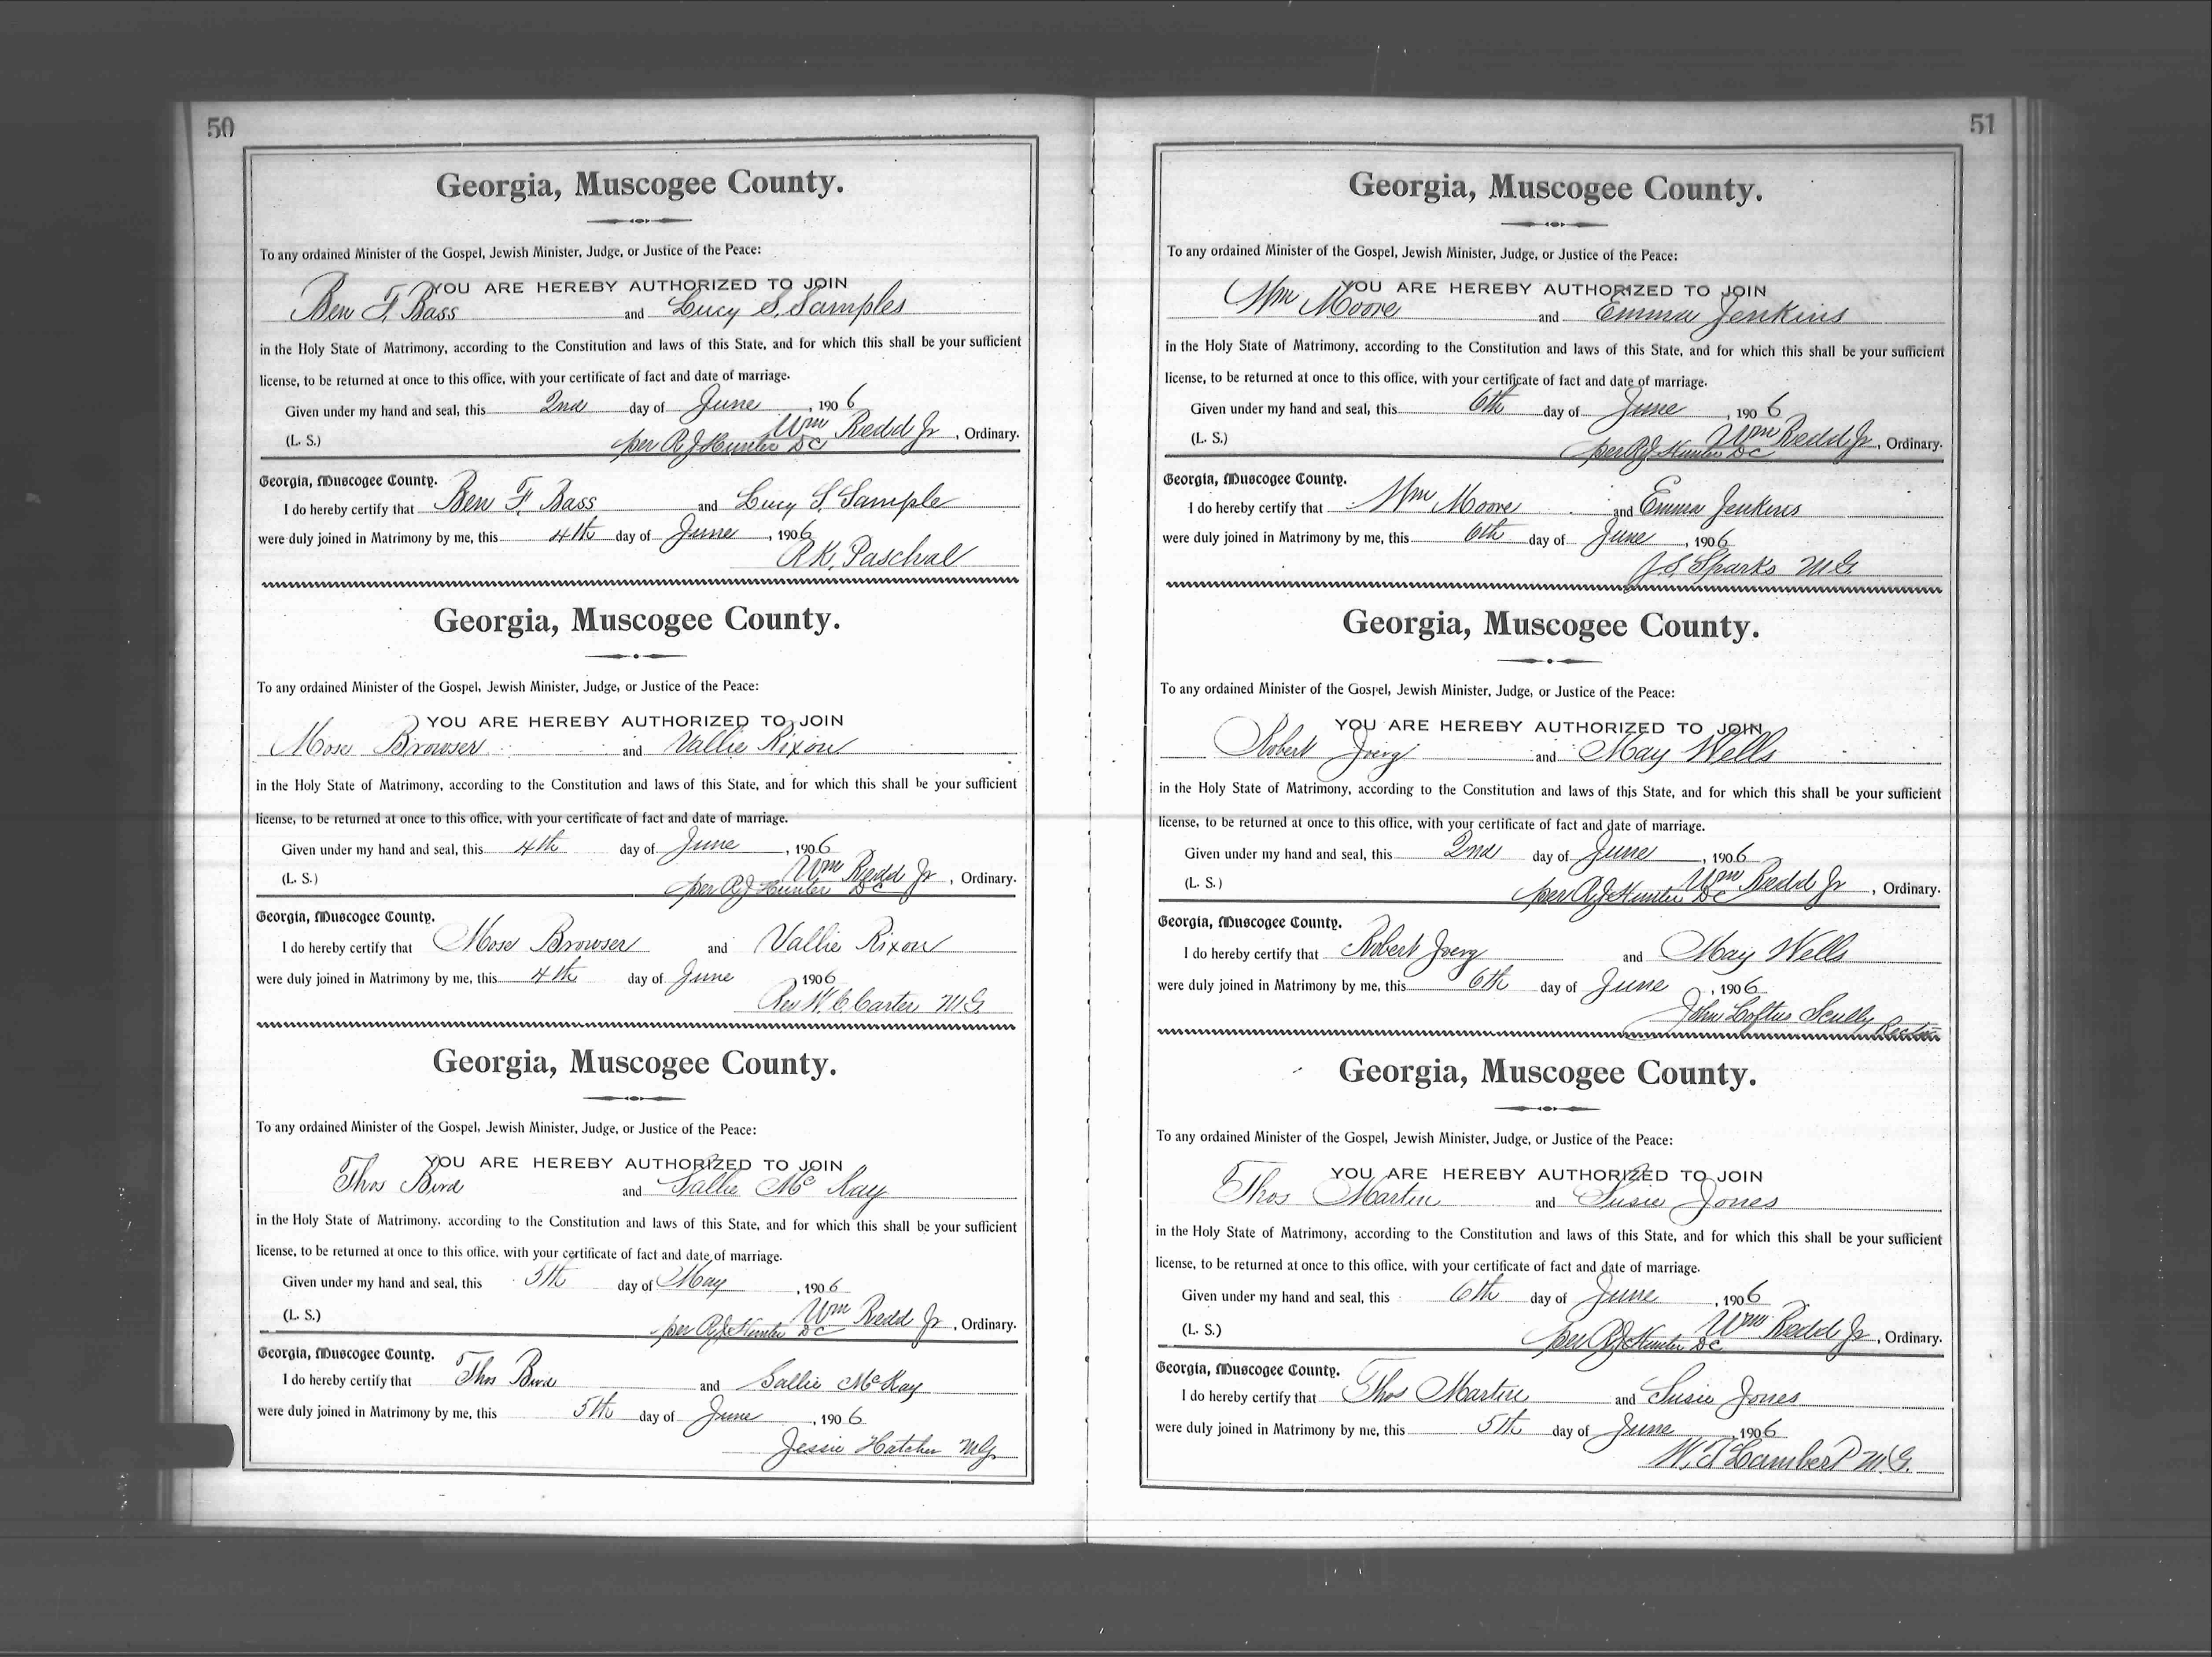 50
Georgia, Muscogee County.
To any ordained Minister of the Gospel, Jewish Minister, Judge, or Justice of the Peace:
YOU ARE HEREBY AUTHORIZED TO JOIN
Ben F. Bass and Lucy S. Samples
in the Holy State of Matrimony, according to the Constitution and laws of this State, and for which this shall be your sufficient
license, to be returned at once to this office, with your certificate of fact and date of marriage.
Given under my hand and seal, this 2nd day of June, 1906
(L. S.) Wm Redd Jr, Ordinary.
per R J Hunter DC
Georgia, Muscogee County.
I do hereby certify that Ben F. Bass and Lucy S. Sample
were duly joined in Matrimony by me, this 4th day of June, 1906
R.K. Paschal
Georgia, Muscogee County.
To any ordained Minister of the Gospel, Jewish Minister, Judge, or Justice of the Peace:
YOU ARE HEREBY AUTHORIZED TO JOIN
Mose Browser and Vallie Rixon
in the Holy State of Matrimony, according to the Constitution and laws of this State, and for which this shall be your sufficient
license, to be returned at once to this office, with your certificate of fact and date of marriage.
Given under my hand and seal, this 4th day of June, 1906
(L. S.) Wm Redd Jr, Ordinary.
per R J Hunter DC
Georgia, Muscogee County.
I do hereby certify that Mose Browser and Vallie Rixon
were duly joined in Matrimony by me, this 4th day of June 1906
Rev W. C. Carter M.G.
Georgia, Muscogee County.
To any ordained Minister of the Gospel, Jewish Minister, Judge, or Justice of the Peace:
YOU ARE HEREBY AUTHORIZED TO JOIN
Thos Bird and Sallie McKay
in the Holy State of Matrimony. according to the Constitution and laws of this State, and for which this shall be your sufficient
license, to be returned at once to this office, with your certificate of fact and date of marriage.
Given under my hand and seal, this 5th day of May, 1906
(L. S.) Wm Redd Jr, Ordinary.
per R J Hunter DC
Georgia, Muscogee County.
I do hereby certify that Thos Bird and Sallie McKay
were duly joined in Matrimony by me, this 5th day of June, 1906
Jessie Hatcher M.G.
51
Georgia, Muscogee County.
To any ordained Minister of the Gospel, Jewish Minister, Judge, or Justice of the Peace:
YOU ARE HEREBY AUTHORIZED TO JOIN
Wm Moore and Emma Jenkins
in the Holy State of Matrimony, according to the Constitution and laws of this State, and for which this shall be your sufficient
license, to be returned at once to this office, with your certificate of fact and date of marriage.
Given under my hand and seal, this 6th day of June, 1906
(L. S.) Wm Redd Jr, Ordinary.
per R J Hunter DC
Georgia, Muscogee County.
I do hereby certify that Wm Moore and Emma Jenkins
were duly joined in Matrimony by me, this 6th day of June, 1906
J.S. Sparks M.G.
Georgia, Muscogee County.
To any ordained Minister of the Gospel, Jewish Minister, Judge, or Justice of the Peace:
YOU ARE HEREBY AUTHORIZED TO JOIN
Robert Joerg and May Wells
in the Holy State of Matrimony, according to the Constitution and laws of this State, and for which this shall be your sufficient
license, to be returned at once to this office, with your certificate of fact and date of marriage.
Given under my hand and seal, this 2nd day of June, 1906
(L. S.) Wm Redd Jr, Ordinary.
per R J Hunter DC
Georgia, Muscogee County.
I do hereby certify that Robert Joerg and May Wells
were duly joined in Matrimony by me, this 6th day of June, 1906
John Loftus Scully Rector
Georgia, Muscogee County.
To any ordained Minister of the Gospel, Jewish Minister, Judge, or Justice of the Peace:
YOU ARE HEREBY AUTHORIZED TO JOIN
Thos Martin and Susie Jones
in the Holy State of Matrimony, according to the Constitution and laws of this State, and for which this shall be your sufficient
license, to be returned at once to this office, with your certificate of fact and date of marriage.
Given under my hand and seal, this 6th day of June, 1906
(L. S.) Wm Redd Jr, Ordinary.
per R J Hunter DC
Georgia, Muscogee County.
I do hereby certify that Thos Martin and Susie Jones
were duly joined in Matrimony by me, this 5th day of June, 1906
W. T. Lambert M.G.